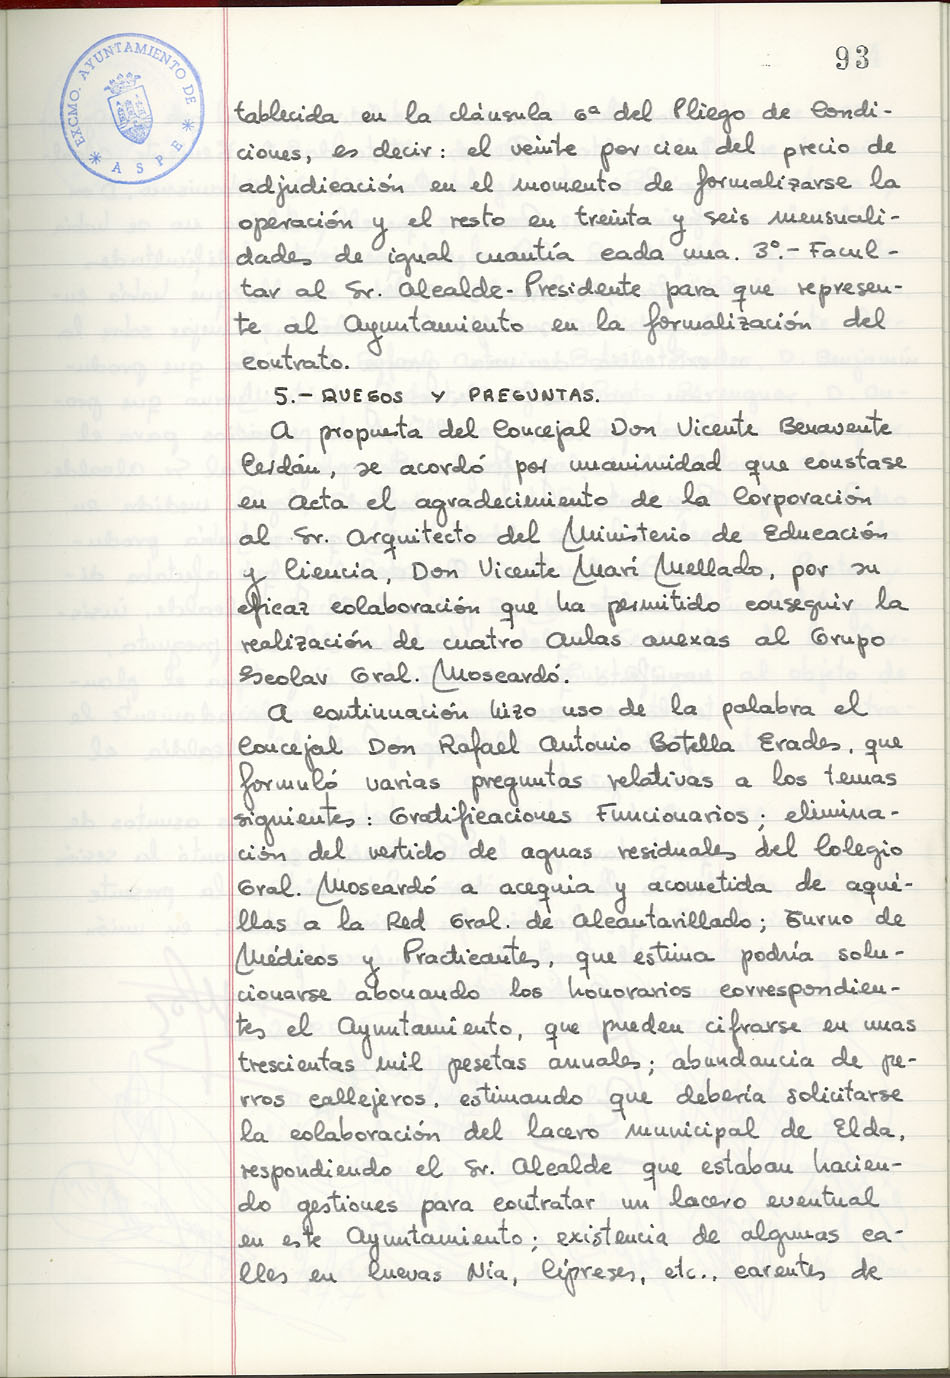 93
EXCMO. AYUNTAMIENTO DE
* ASPE *
tablecida en la cláusula 6ª del Pliego de Condi-
ciones, es decir: el veinte por cien del precio de
adjudicación en el momento de formalizarse la
operación y el resto en treinta y seis mensuali-
dades de igual cuantía cada una. 3º.- Facul-
tar al Sr. Alcalde-Presidente para que represen-
te al Ayuntamiento en la formalización del
contrato.
5.- RUEGOS Y PREGUNTAS.
A propuesta del Concejal Don Vicente Benavente
Cerdán, se acordó por unanimidad que constase
en Acta el agradecimiento de la Corporación
al Sr. Arquitecto del Ministerio de Educación
y Ciencia, Don Vicente Marí Mellado, por su
eficaz colaboración que ha permitido conseguir la
realización de cuatro Aulas anexas al Grupo
Escolar Gral. Moscardó.
A continuación hizo uso de la palabra el
Concejal Don Rafael Antonio Botella Erades, que
formuló varias preguntas relativas a los temas
siguientes: Gratificaciones Funcionarios; elimina-
ción del vertido de aguas residuales del Colegio
Gral. Moscardó a acequia y acometida de aqué-
llas a la Red Gral. de Alcantarillado; Turno de
Médicos y Practicantes, que estima podría solu-
cionarse abonando los honorarios correspondien-
tes el Ayuntamiento, que pueden cifrarse en unas
trescientas mil pesetas anuales; abundancia de pe-
rros callejeros, estimando que debería solicitarse
la colaboración del lacero municipal de Elda,
respondiendo el Sr. Alcalde que estaban hacien-
do gestiones para contratar un lacero eventual
en este Ayuntamiento; existencia de algunas ca-
lles en Cuevas Nía, Cipreses, etc., carentes de